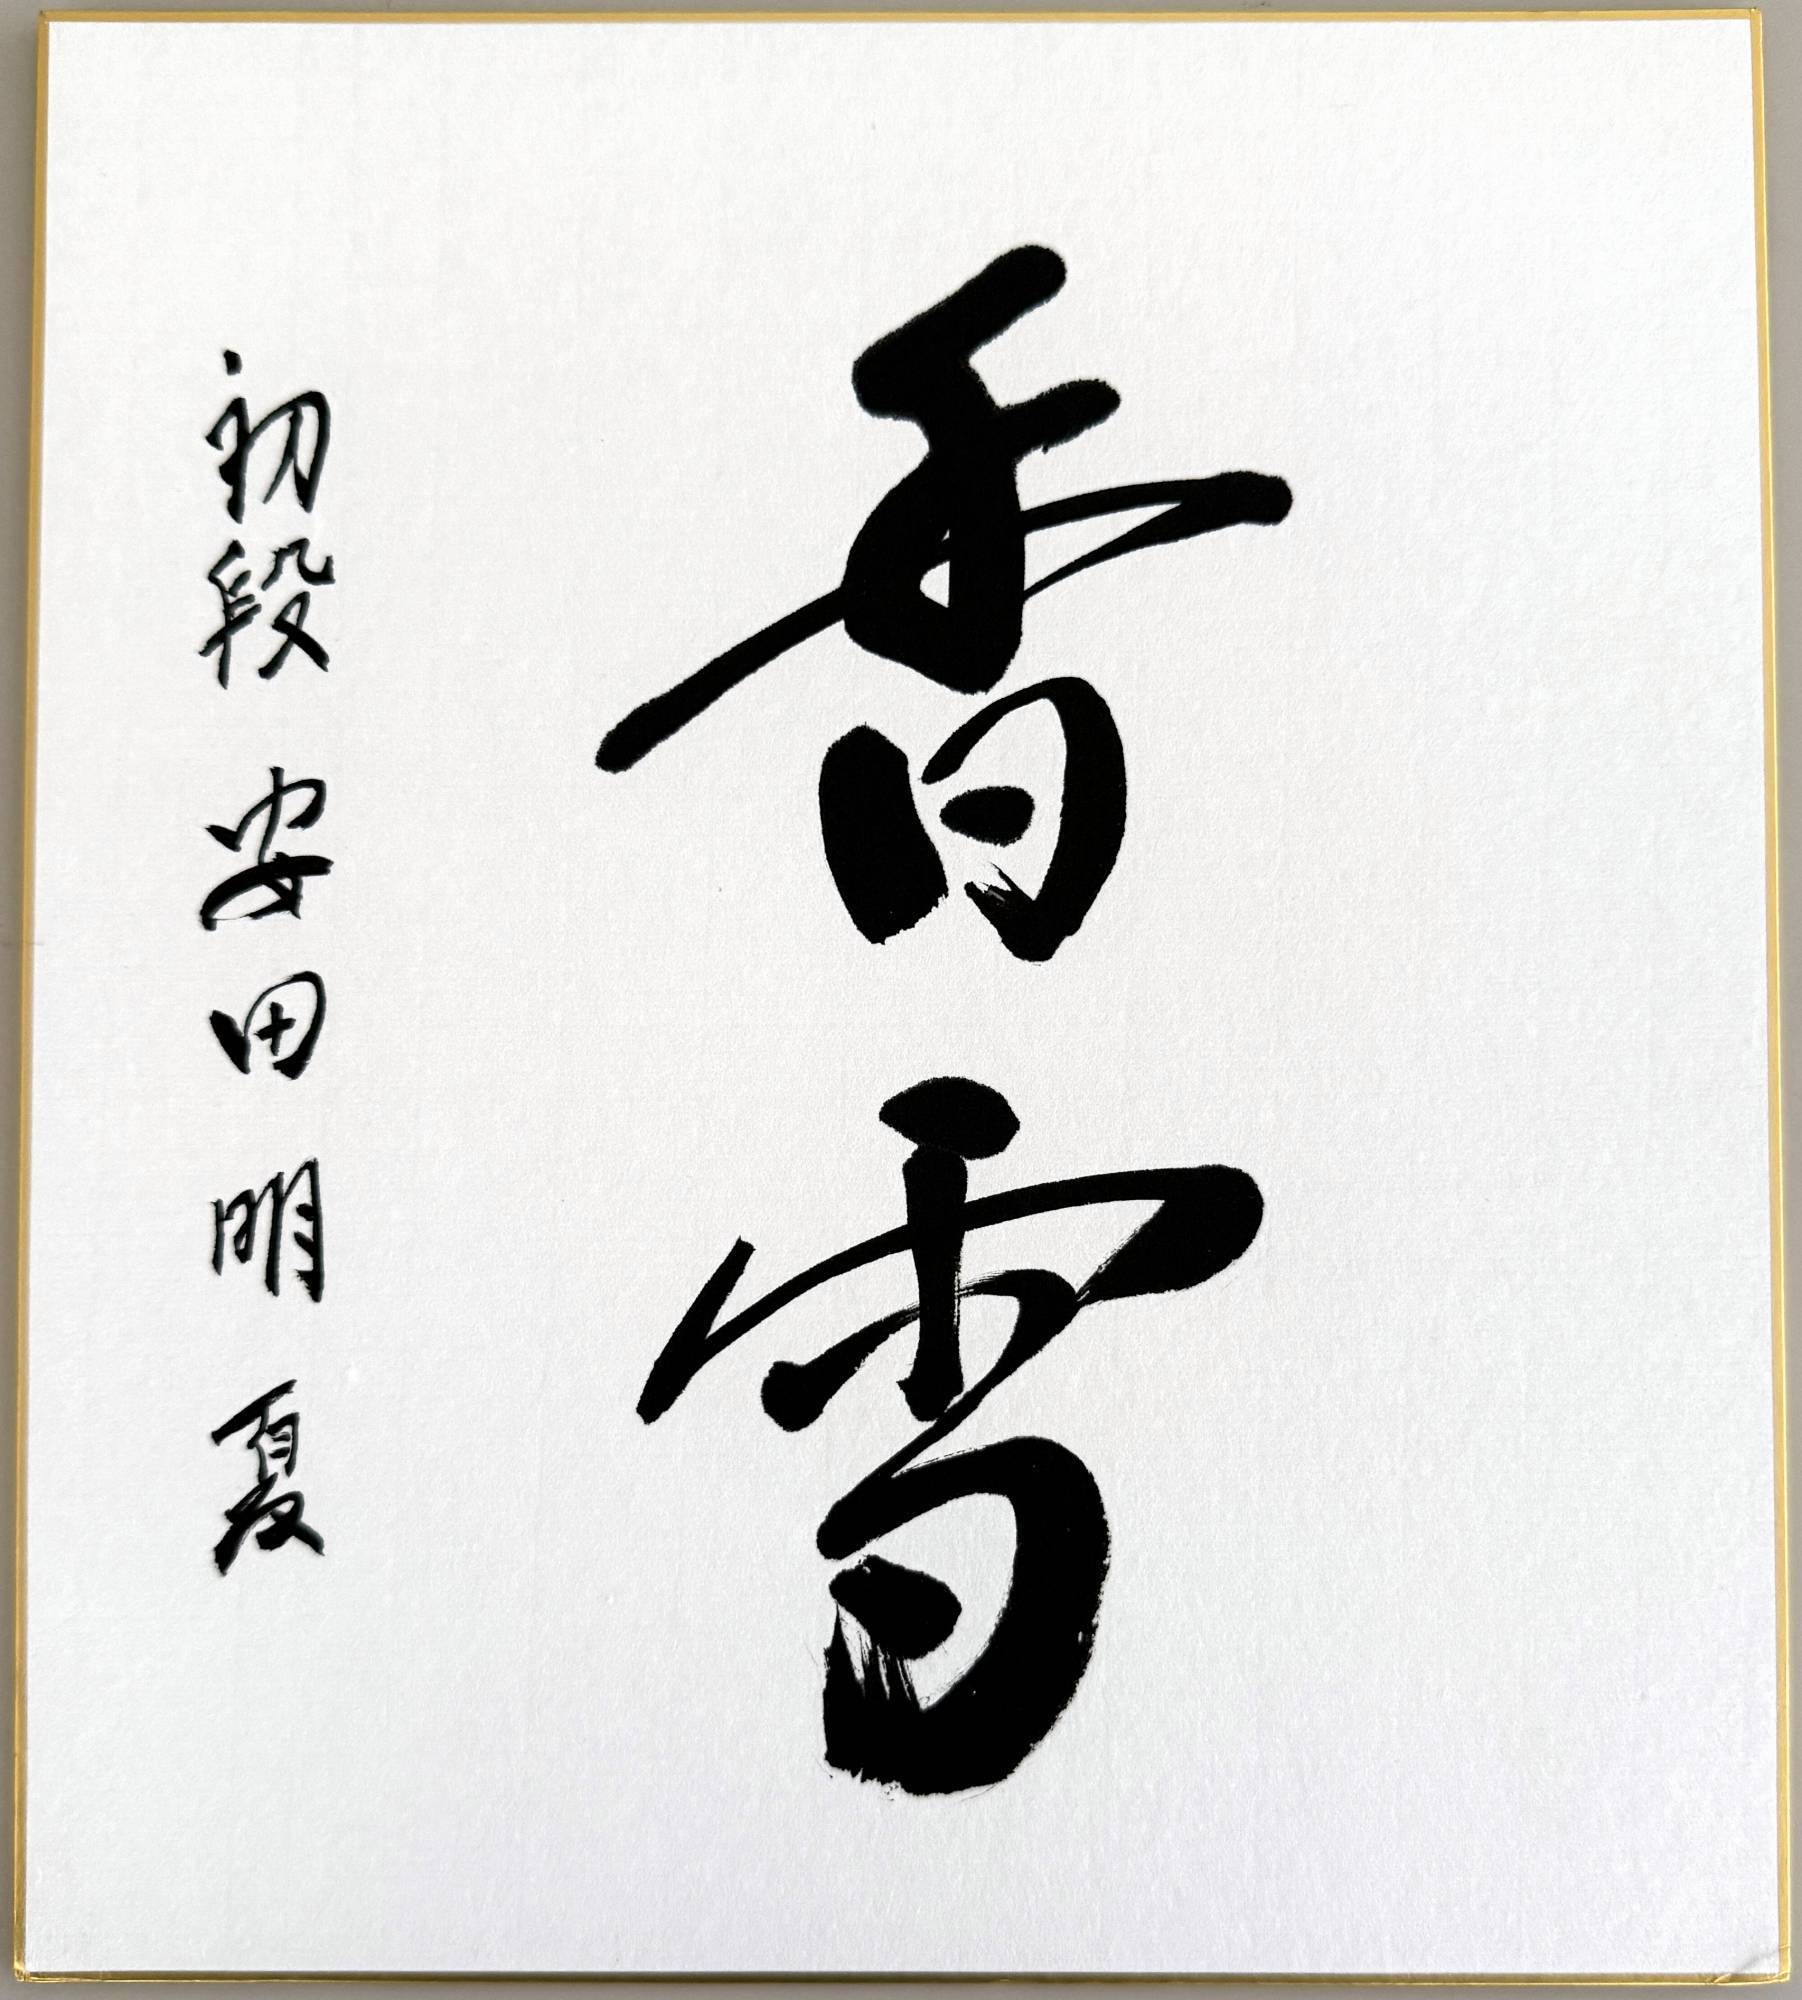 香雪
初段 安田明夏